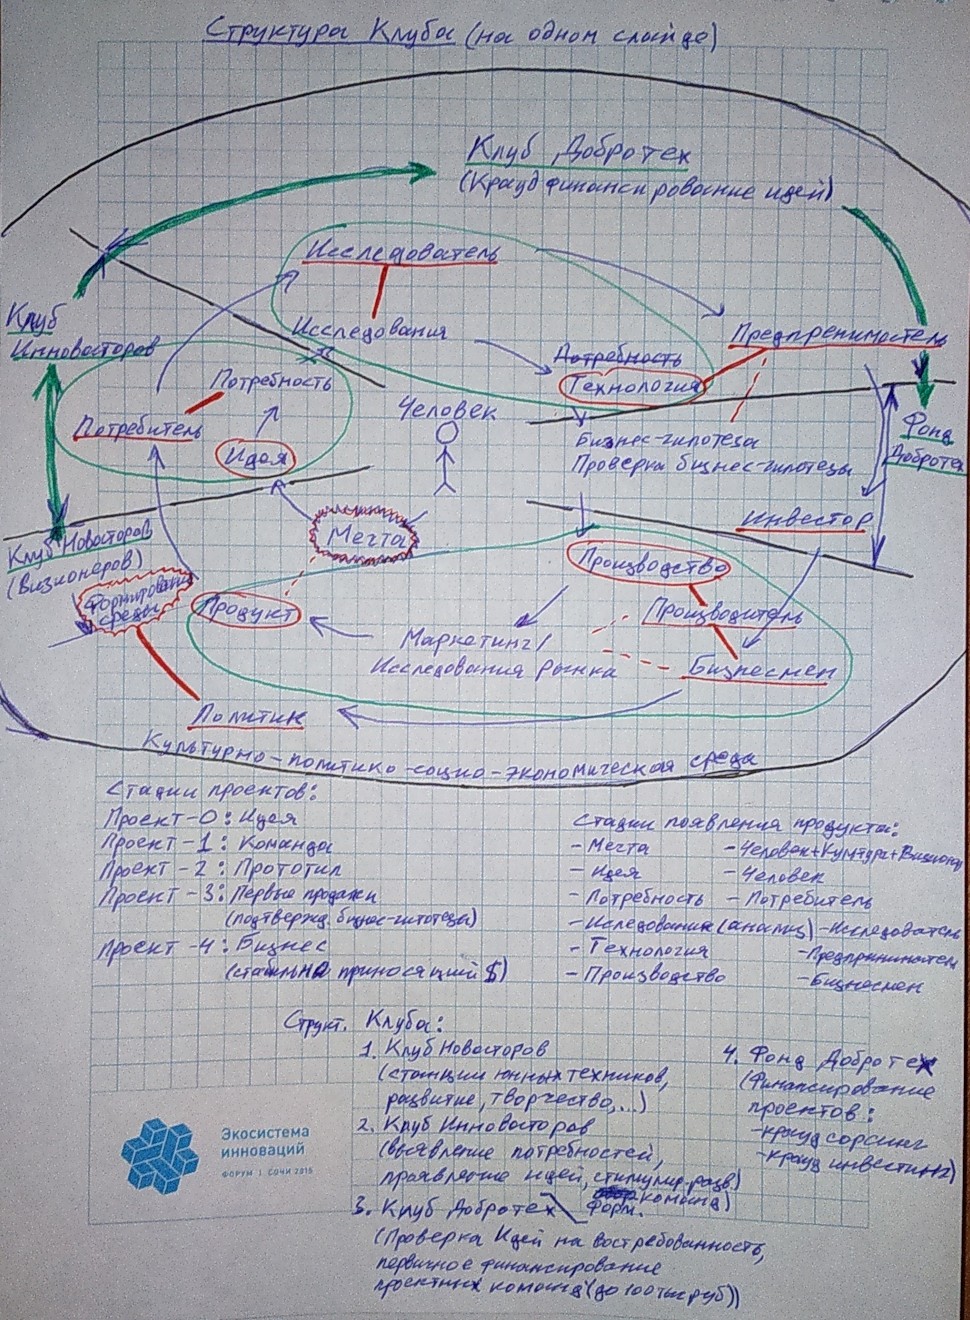 Структура Клуба (на одном слайде)
Клуб Добротех
(Крауд финансирование идей)
Исследователь
Исследования
Клуб
Инноваторов
Предприниматель
Потребность
Технология
Потребность
Потребитель
Идея
Человек
Бизнес-гипотеза
Проверка бизнес-гипотезы
Фонд
Добротех
Инвестор
Мечта
Клуб Новаторов
(Визионеров)
Формирование
среды
Продукт
Производство
Производитель
Маркетинг/
Исследования рынка
Бизнесмен
Политик
Культурно-политико-социо-экономическая среда
Стадии проектов:
Проект-0: Идея
Проект-1: Команда
Проект-2: Прототип
Проект-3: Первые продажи
(подтвержд. бизнес-гипотезы)
Проект-4: Бизнес
(стабильно приносящий $)
Стадии появления продукта:
- Мечта - Человек+Культура+Визионер
- Идея - Человек
- Потребность - Потребитель
- Исследования (анализ) - Исследователь
- Технология - Предприниматель
- Производство - Бизнесмен
Структ. Клуба:
1. Клуб Новаторов
(станции юных техников,
развитие, творчество,...)
2. Клуб Инноваторов
(выявление потребностей,
проявление идей, стимулир. разв.)
Форм. команд)
3. Клуб Добротех
(Проверка Идей на востребованность,
первичное финансирование
проектных команд (до 100 тыс руб))
4. Фонд Добротех
(Финансирование
проектов:
- крауд сорсинг
- крауд инвестинг)
Экосистема
инноваций
ФОРУМ | СОЧИ 2015